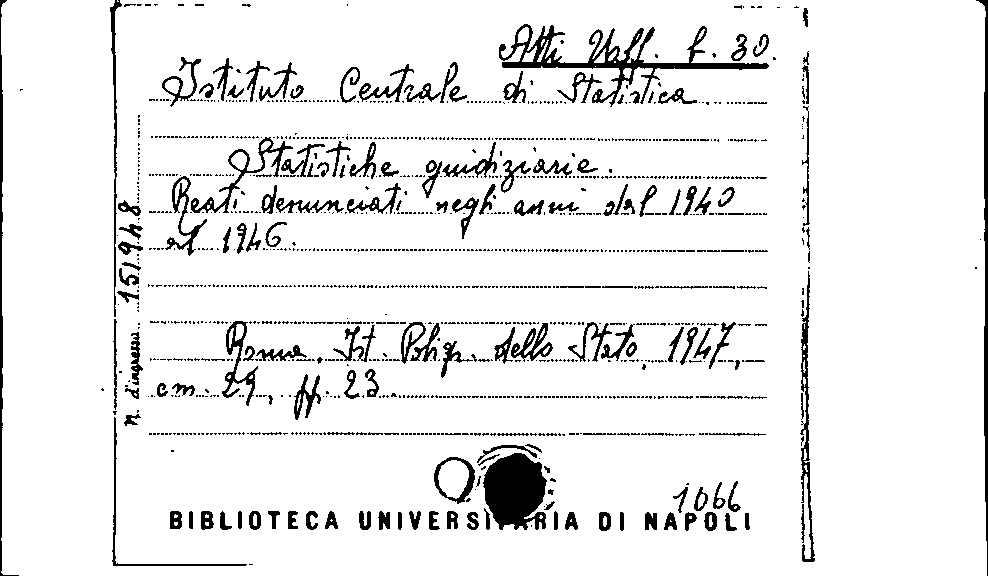 Atti Uff. f. 30.
Istituto Centrale di Statistica.
Statistiche guidiziarie.
Reati denunciati negli anni dal 1940
al 1946.
n. d'ingresso 151948
Roma, Ist. Poligr. dello Stato, 1947,
cm. 29, pp. 23.
1066
BIBLIOTECA UNIVERSITARIA DI NAPOLI